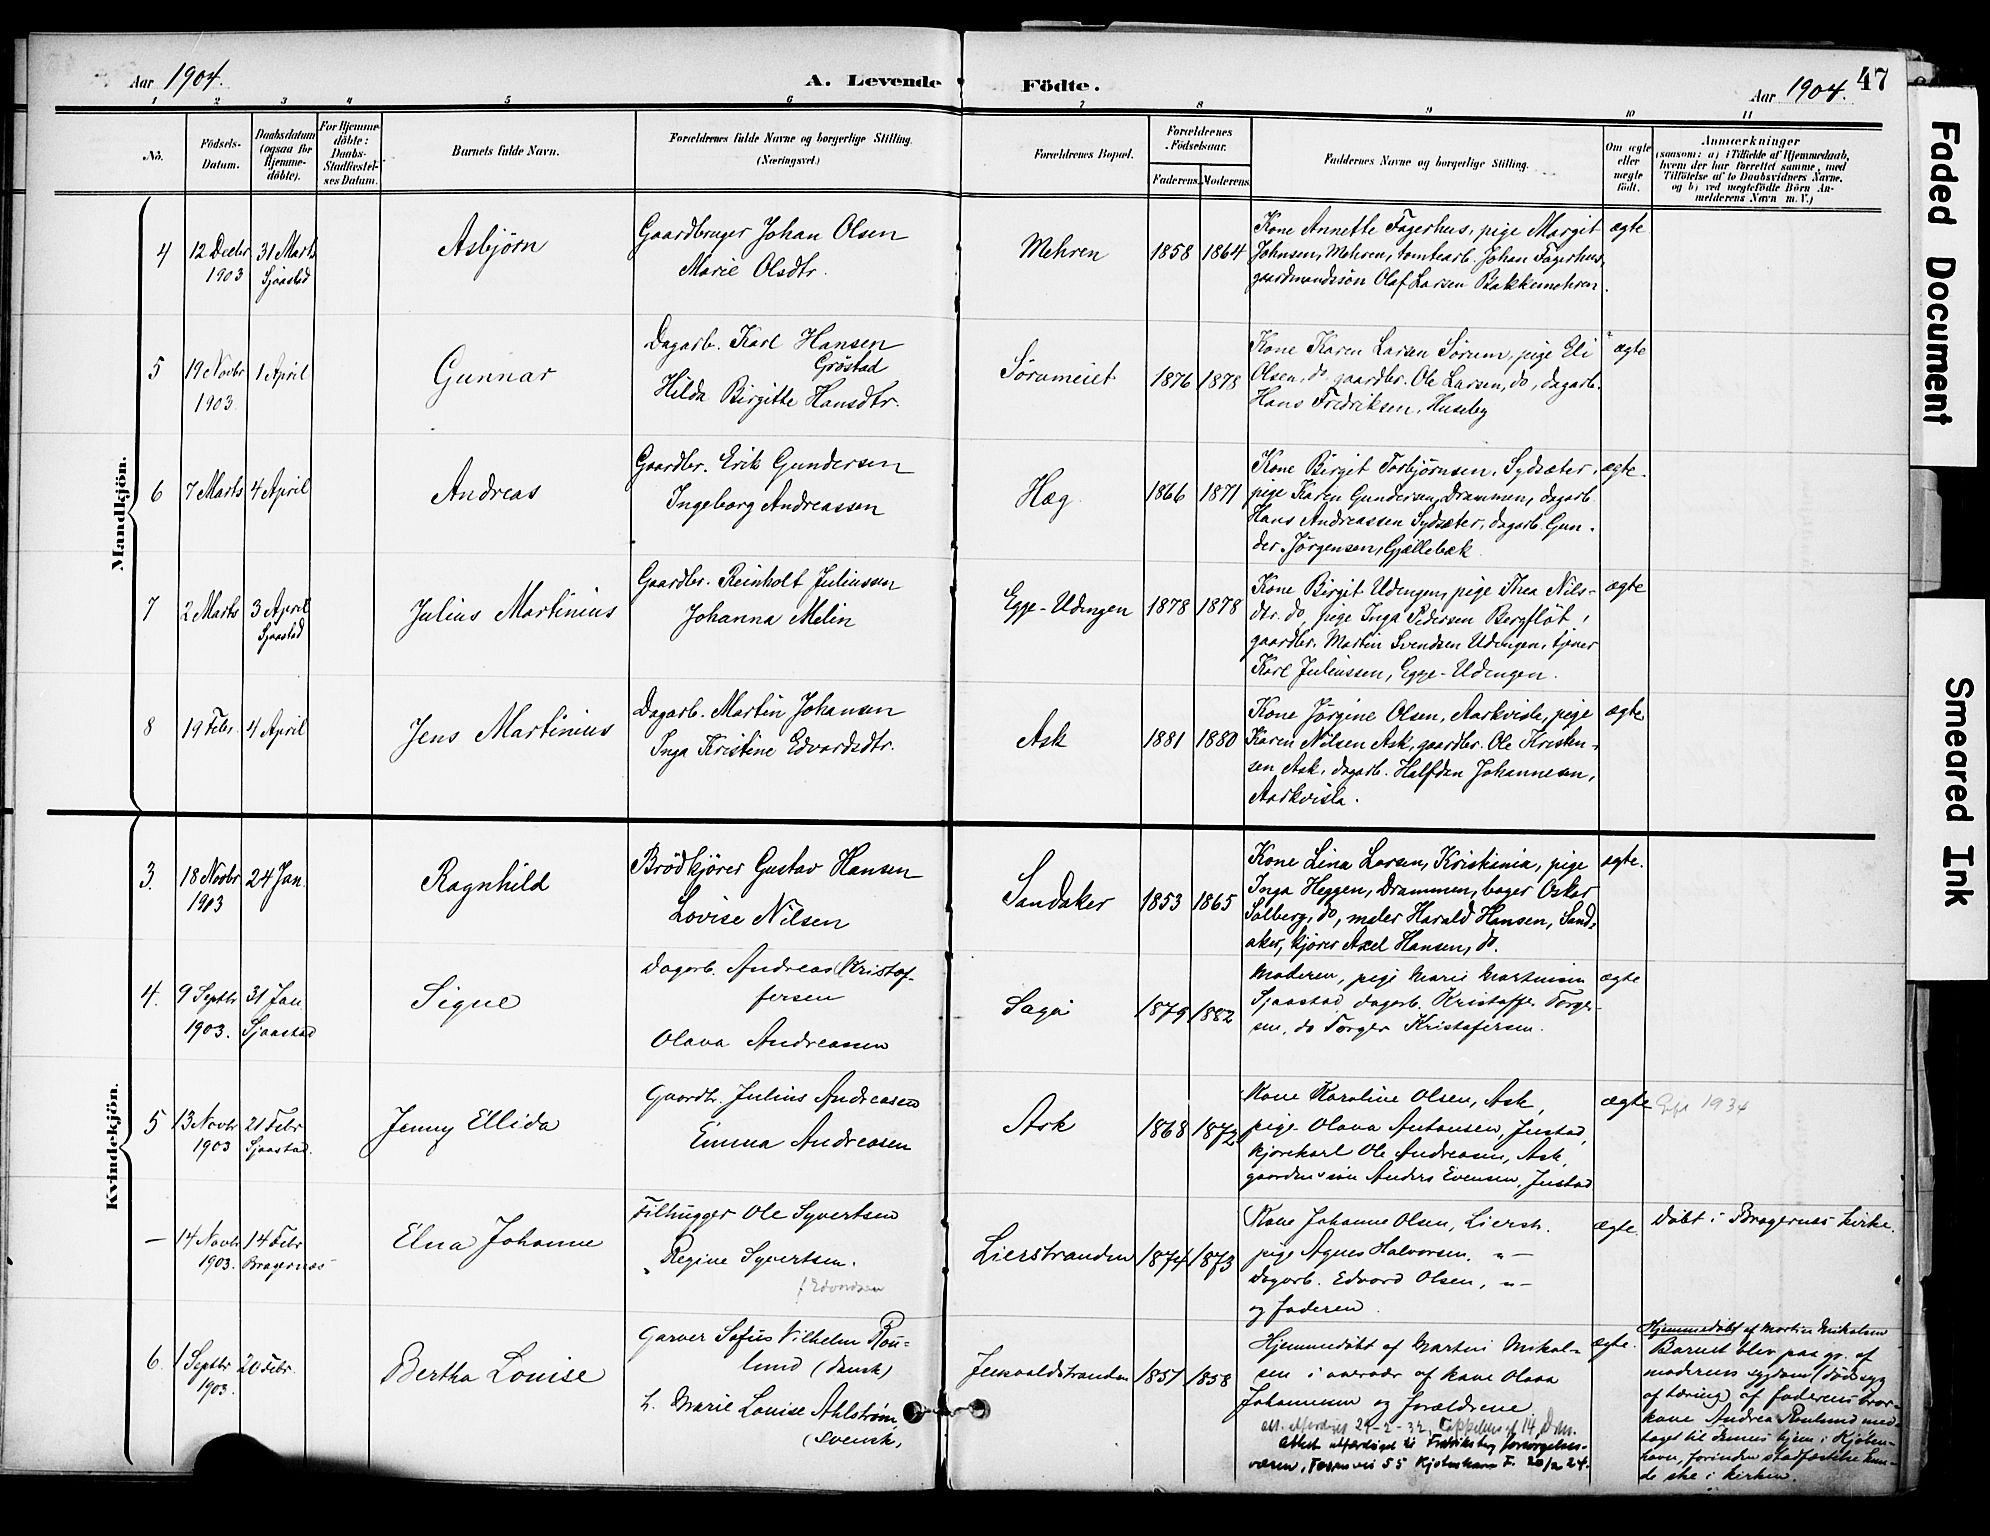 Aar 1904.
A. Levende Födte.
Aar 1904.
47
1 2 3 4 5 6 7 8 9 10 11
No.
Födsels-
Datum.
Daabsdatum
(ogsaa for
Hjemme-
döbte).
For Hjemme-
döbte:
Daabs-
Stadfæstel-
ses Datum.
Barnets fulde Navn.
Forældrenes fulde Navne og borgerlige Stilling.
(Næringsvei.)
Forældrenes Bopæl.
Forældrenes
Födselsaar.
Faderens. Moderens.
Faddernes Navne og borgerlige Stilling.
Om ægte
eller
uægte
födt.
Anmærkninger
(saasom: a) i Tilfælde af Hjemmedaab,
hvem der har forrettet samme, med
Tilföielse af to Daabsvidners Navne.
og b) ved uægtefödte Börn An-
melderens Navn m. V.)
Mandkjön.
4
12 Decbr
1903
31 Marts
Sjaastad
Asbjørn
Gaardbruger Johan Olsen
Marie Olsdtr.
Mehren
1858 1864
Kone Annette Fagerhus, pige Margit
Johnsen, Mehren, tomtearb. Johan Fagerhus,
gaardmandssön Olaf Larsen Bakkemehren.
ægte
5
19 Novbr
1903
1 April
Gunnar
Dagarb. Karl Hansen
Gröstad
Hilda Birgitte Hansdtr.
Sørumeiet
1876 1878
Kone Karen Larsen Sørum, pige Eli
Olsen, do, gaardbr. Ole Larsen, do, dagarb.
Hans Fredriksen, Huseby
ægte
6
7 Marts
4 April
Andreas
Gaardbr. Erik Gundersen
Ingeborg Andreassen
Hæg
1866 1871
Kone Birgit Torbjørnsen, Sydsæter,
pige Karen Gundersen, Drammen, dagarb.
Hans Andreassen Sydsæter, dagarb. Gun-
der Jørgensen, Gjellebæk
ægte.
7
2 Marts
3 April
Sjaastad
Julius Martinius
Gaardbr. Reinholt Juliussen
Johanna Melin
Egge-Udengen
1878 1878
Kone Birgit Udengen, pige Thea Nils-
dtr. do, pige Inga Pedersen Bergflöt,
gaardbr. Martin Svendsen Udengen, tjener
Karl Juliussen, Egge-Udengen.
ægte
8
19 Febr.
4 April
Jens Martinius
Dagarb. Martin Johansen
Inga Kristine Edvardsdtr.
Ask
1881 1880
Kone Jørgine Olsen, Aarkvisla, pige
Karen Nilsen Ask, gaardbr. Ole Kristen-
sen Ask, dagarb. Halfdan Johannesen,
Aarkvisla.
ægte
Kvindekjön.
3.
18 Novbr
1903
24 Jan.
Ragnhild
Brödkjörer Gustav Hansen
Lovise Nilsen
Sandaker
1853 1865
Kone Lina Larsen, Kristiania, pige
Inga Heggen, Drammen, bager Oskar
Solberg, do, maler Harald Hansen, Sand-
aker, kjörer Axel Hansen, do.
ægte.
4.
9 Septbr
1903.
31 Jan
Sjaastad
Signe
Dagarb. Andreas Kristof-
fersen
Olava Andreassen
Saga
1879 1882
Moderen, pige Marie Martinsen
Sjaastad, dagarb. Kristoffer Torger-
sen, do Torger Kristofersen.
ægte
5
13 Novbr
1903
21 Febr
Sjaastad.
Jenny Ellida
Gaardbr. Julius Andreasen
Emma Andreasen
Ask
1868 1872
Kone Karoline Olsen, Ask,
pige Olava Antonsen, Justad,
kjörekarl Ole Andreasen, Ask,
gaardm.sön Anders Evensen, Justad
ægte
1934
—
14 Novbr
1903.
14 Febr
Bragernæs
Elna Johanne
Tilhugger Ole Syvertsen
Regine Syvertsen.
f. Edvardsen
Lierstranden
1874 1873
Kone Johanne Olsen, Lierstr.
pige Agnes Halvorsen, "—
dagarb. Edvard Olsen, "—
og faderen.
ægte.
Döbt i Bragernæs kirke.
6.
1 Septbr
1903.
20 Febr.
Bertha Louise
Garver Sofus Vilhelm Rou-
lund (dansk)
h. Marie Louise Ahlstrøm
(svensk)
Jensvoldstranden
1857 1858
Hjemmedöbt af Martin Mikal-
sen i overvær af kone Olava
Johannesen og Forældrene
att. utferdiget 29-2-32, Cappelensgt 14, Dmn.
Attest utfærdiget til Fredriksberg forsørgelses-
væsen, 55 Kjøbenhavn F. 20/2 24.
ægte.
Hjemmedöbt af Martin Mikalsen
Barnet blev paa gr. af
moderens sygdom (dödssyg
af tæring) af faderens bror-
kone Andrea Roulund med-
taget til dennes hjem i Kjöben-
havn, forinden stadfæstelse kun-
de ske i kirken.
Faded Document
Smeared Ink